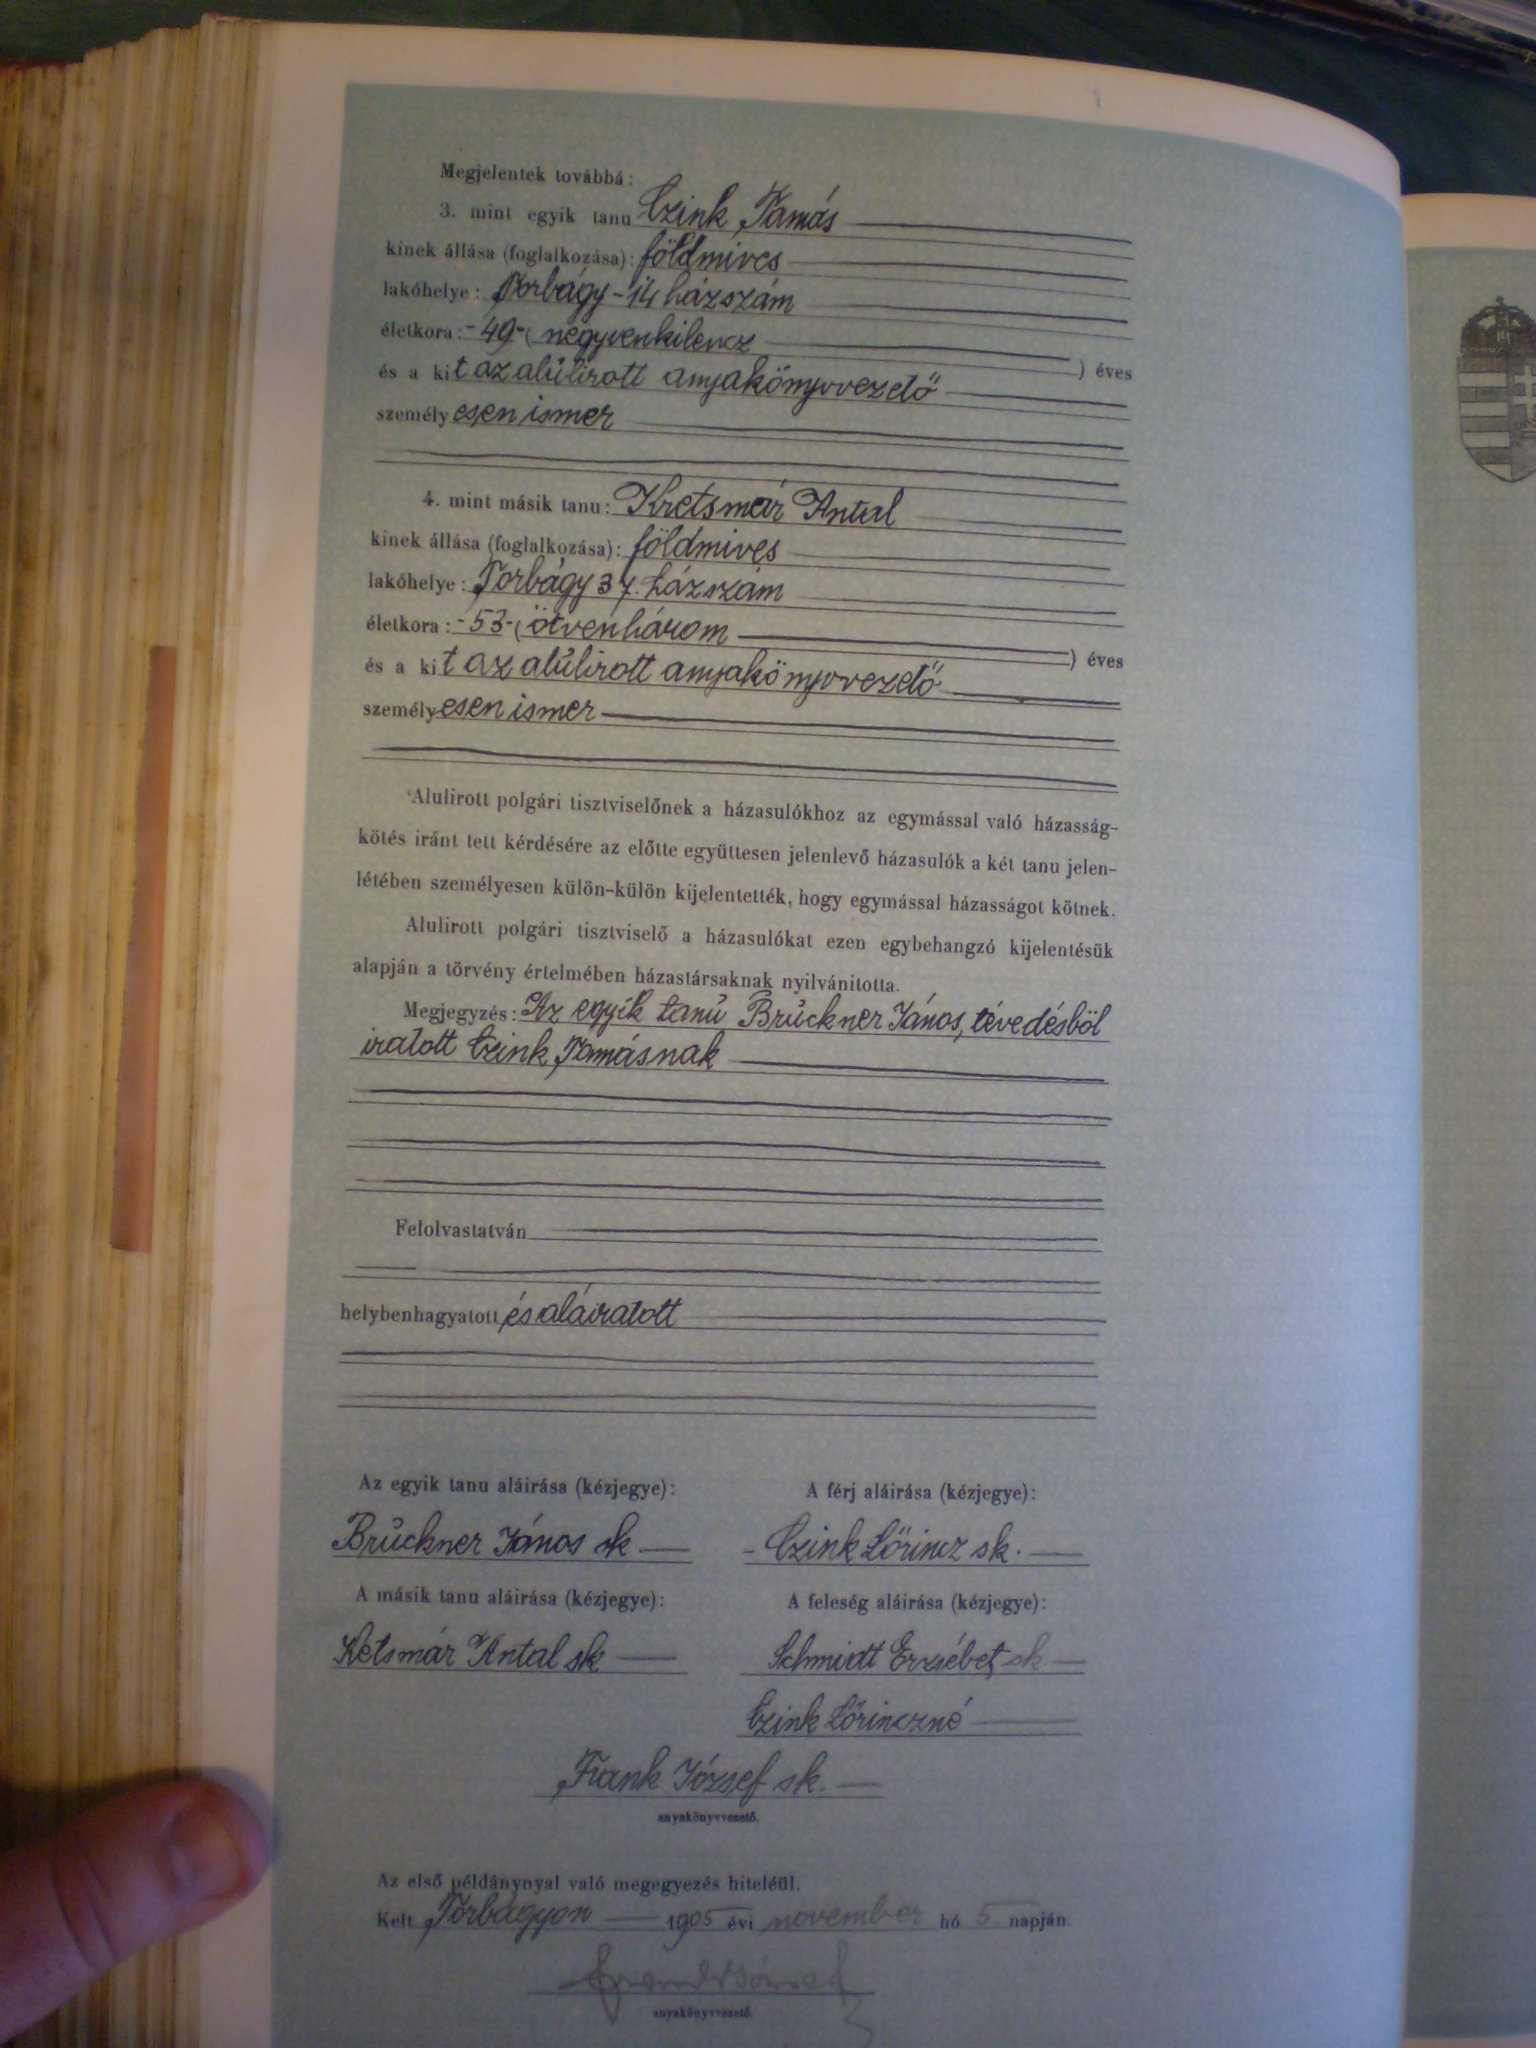 Megjelentek továbbá:
3. mint egyik tanu Czink Tamás
kinek állása (foglalkozása): földmives
lakóhelye: Torbágy - 14 házszám
életkora: -49- ( negyvenkilencz ) éves
és a kit az alúlirott anyakönyvvezető
személyesen ismer
4. mint másik tanu: Kretsmár Antal
kinek állása (foglalkozása): földmives
lakóhelye: Torbágy 37. házszám
életkora: -53- ( ötvenhárom ) éves
és a kit az alúlirott anyakönyvvezető
személyesen ismer
Alulirott polgári tisztviselőnek a házasulókhoz az egymással való házasság-
kötés iránt tett kérdésére az előtte együttesen jelenlevő házasulók a két tanu jelen-
létében személyesen külön-külön kijelentették, hogy egymással házasságot kötnek.
Alulirott polgári tisztviselő a házasulókat ezen egybehangzó kijelentésük
alapján a törvény értelmében házastársaknak nyilvánitotta.
Megjegyzés: Az egyik tanú Brückner János, tévedésböl
iratott Czink Tamásnak
Felolvastatván
helybenhagyatott és aláiratott
Az egyik tanu aláirása (kézjegye): A férj aláirása (kézjegye):
Brückner János sk Czink Lőrincz sk.
A másik tanu aláirása (kézjegye): A feleség aláirása (kézjegye):
Ketsmár Antal sk Schmidt Erzsébet sk
Czink Lőrinczné
Frank József sk.
anyakönyvvezető.
Az első példánynyal való megegyezés hiteléül.
Kelt Torbágyon 1905 évi november hó 5. napján
anyakönyvvezető.